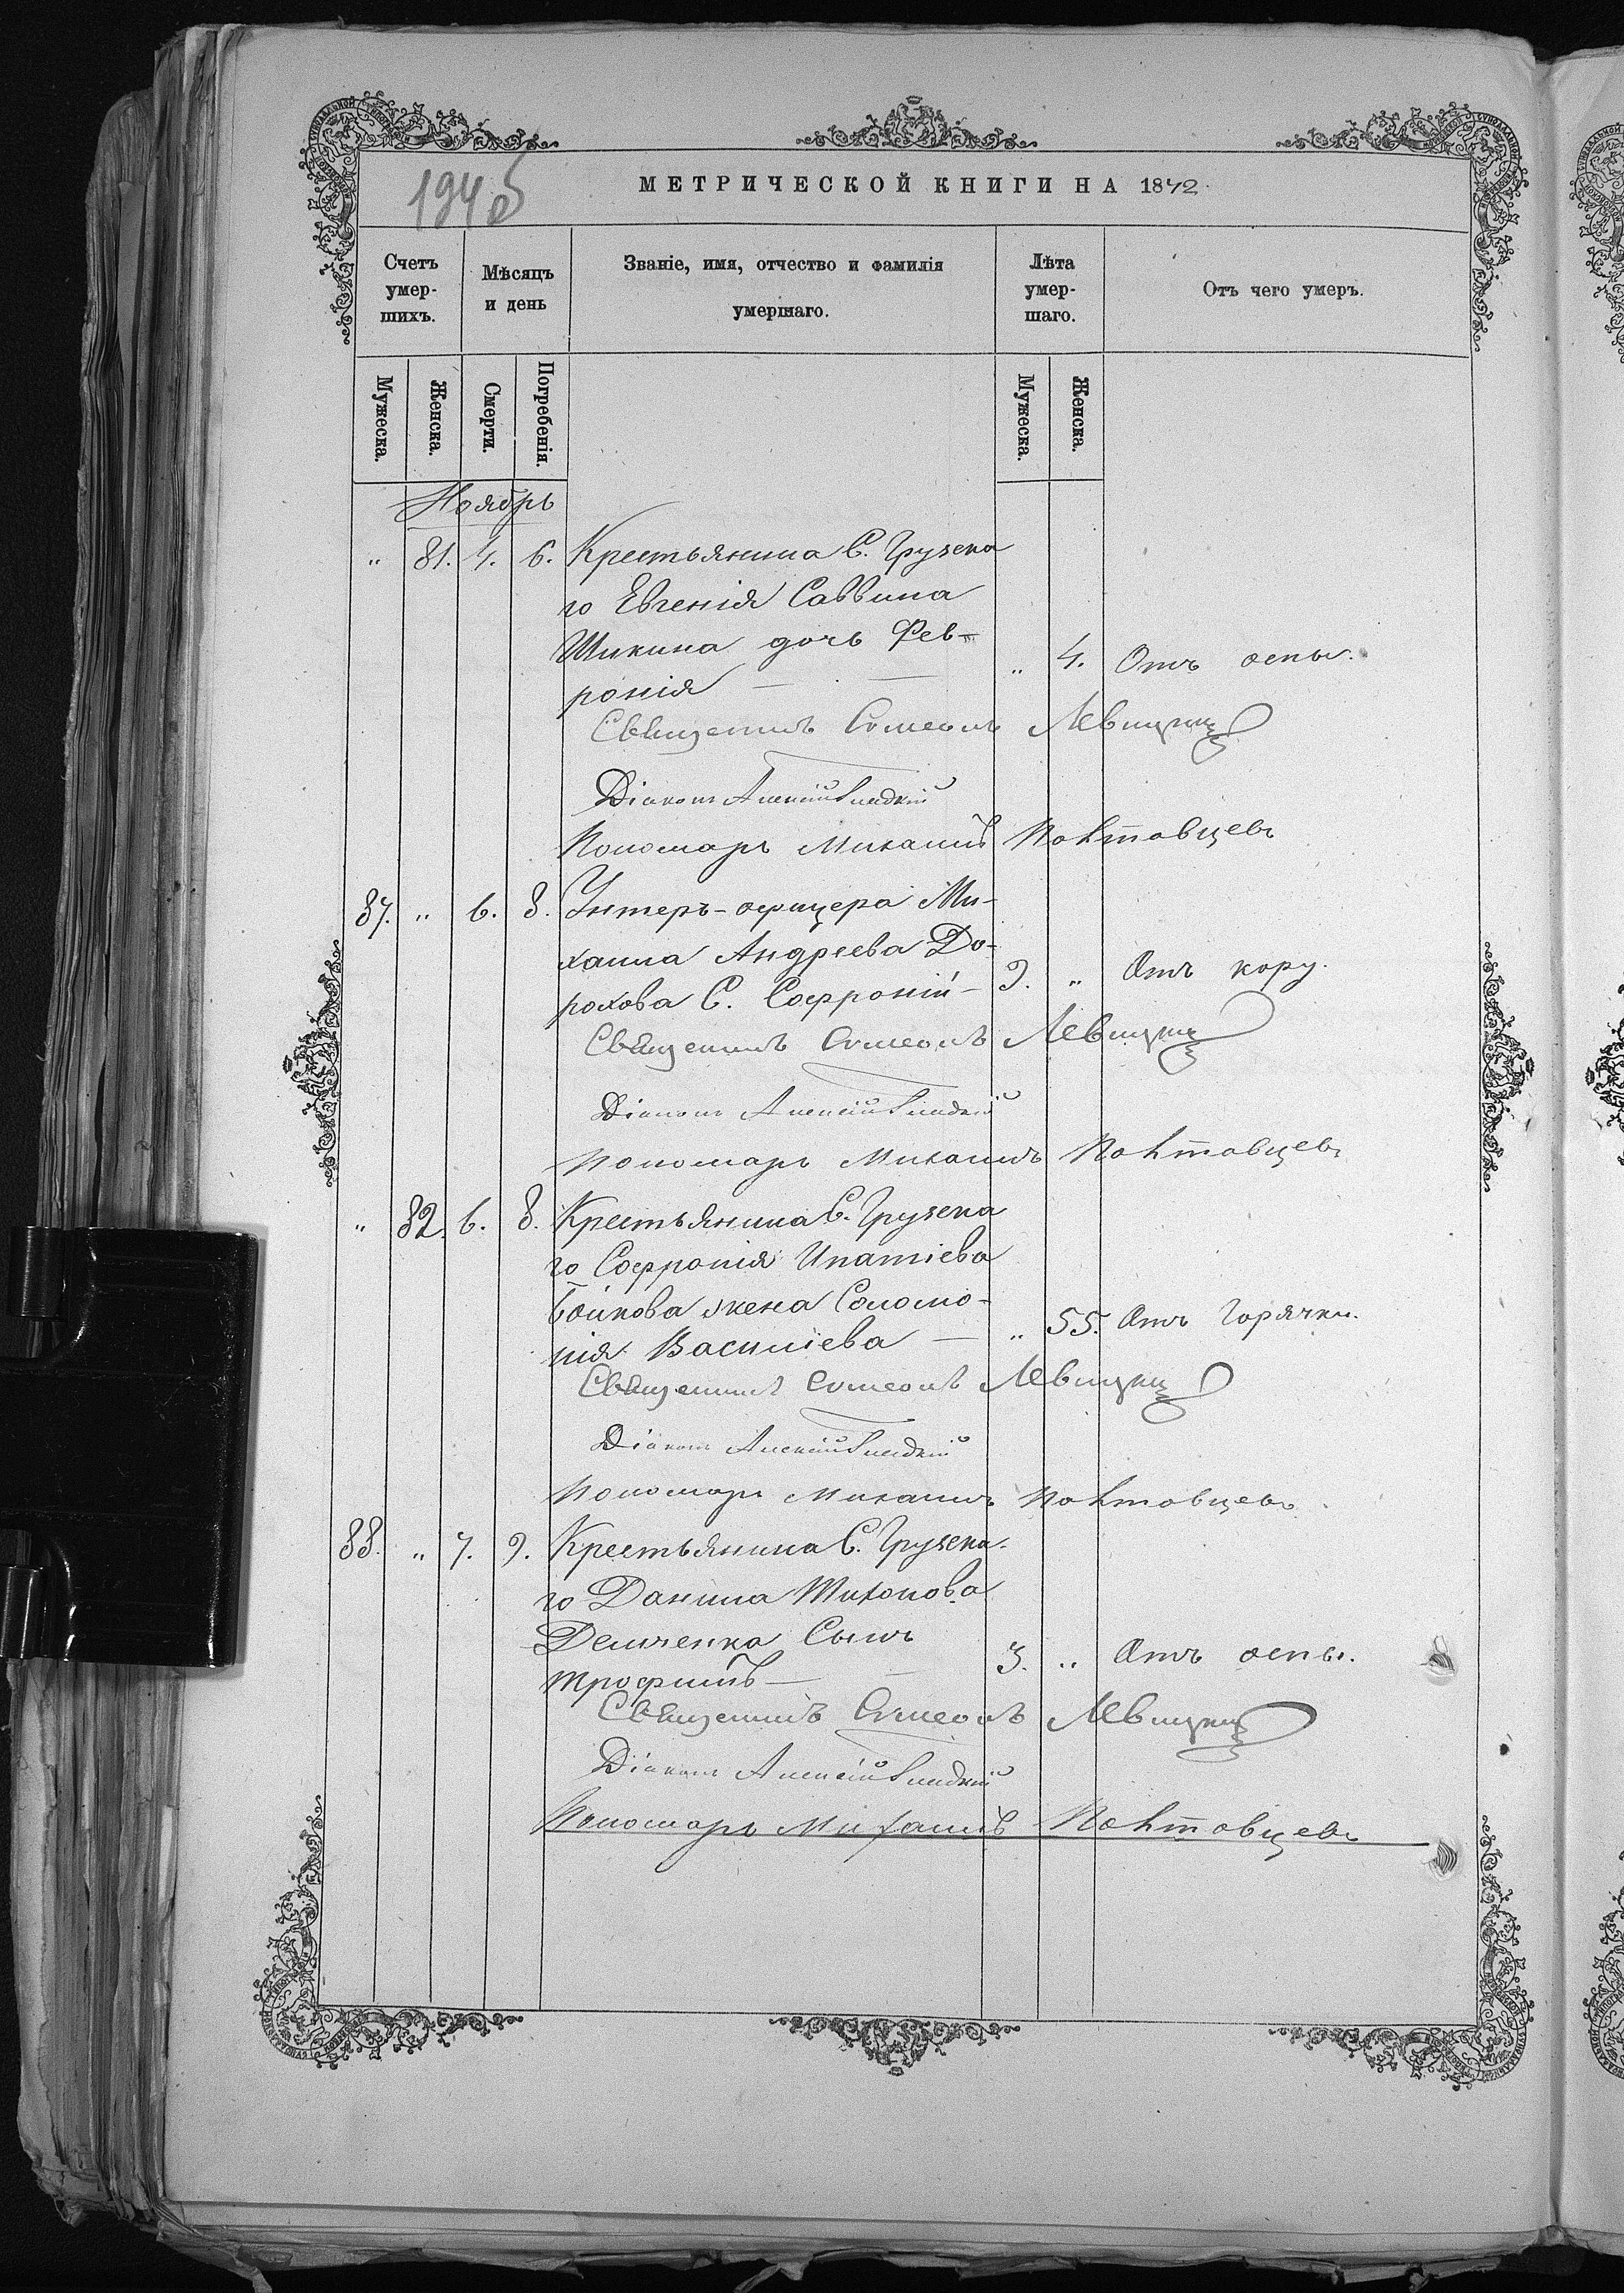 194об
МЕТРИЧЕСКОЙ КНИГИ НА 1872
Счетъ умер-шихъ.
Мѣсяцъ и день
Званіе, имя, отчество и фамилія умершаго.
Лѣта умер-шаго.
Отъ чего умеръ.
Мужеска. Женска. Смерти. Погребенія. Мужеска. Женска.
Ноябрь
" 81. 4. 6. Крестьянина С. Грузска
го Евгенія Саввина
Шикина дочь Фев-
ронія — " 4. Отъ оспы.
Священникъ Симеонъ Левицкій
Діаконъ Алексій
Пономарь Михаилъ Полтавцевъ
87. " 6. 8. Унтеръ-офицера Ми-
хаила Андреева До-
рохова С. Софроній — 9. " Отъ кору.
Священникъ Симеонъ Левицкій
Діаконъ Алексій
Пономарь Михаилъ Полтавцевъ
" 82. 6. 8. Крестьянина С. Грузска
го Софронія Ипатіева
Бойкова жена Соломо-
нія Василіева — " 55. Отъ Горячки.
Священникъ Симеонъ Левицкій
Діаконъ Алексій
Пономарь Михаилъ Полтавцевъ
88. " 7. 9. Крестьянина С. Грузска-
го Данила Тихонова
Демченка Сынъ
Трофимъ — 3. " Отъ оспы.
Священникъ Симеонъ Левицкій
Діаконъ Алексій
Пономарь Михаилъ Полтавцевъ